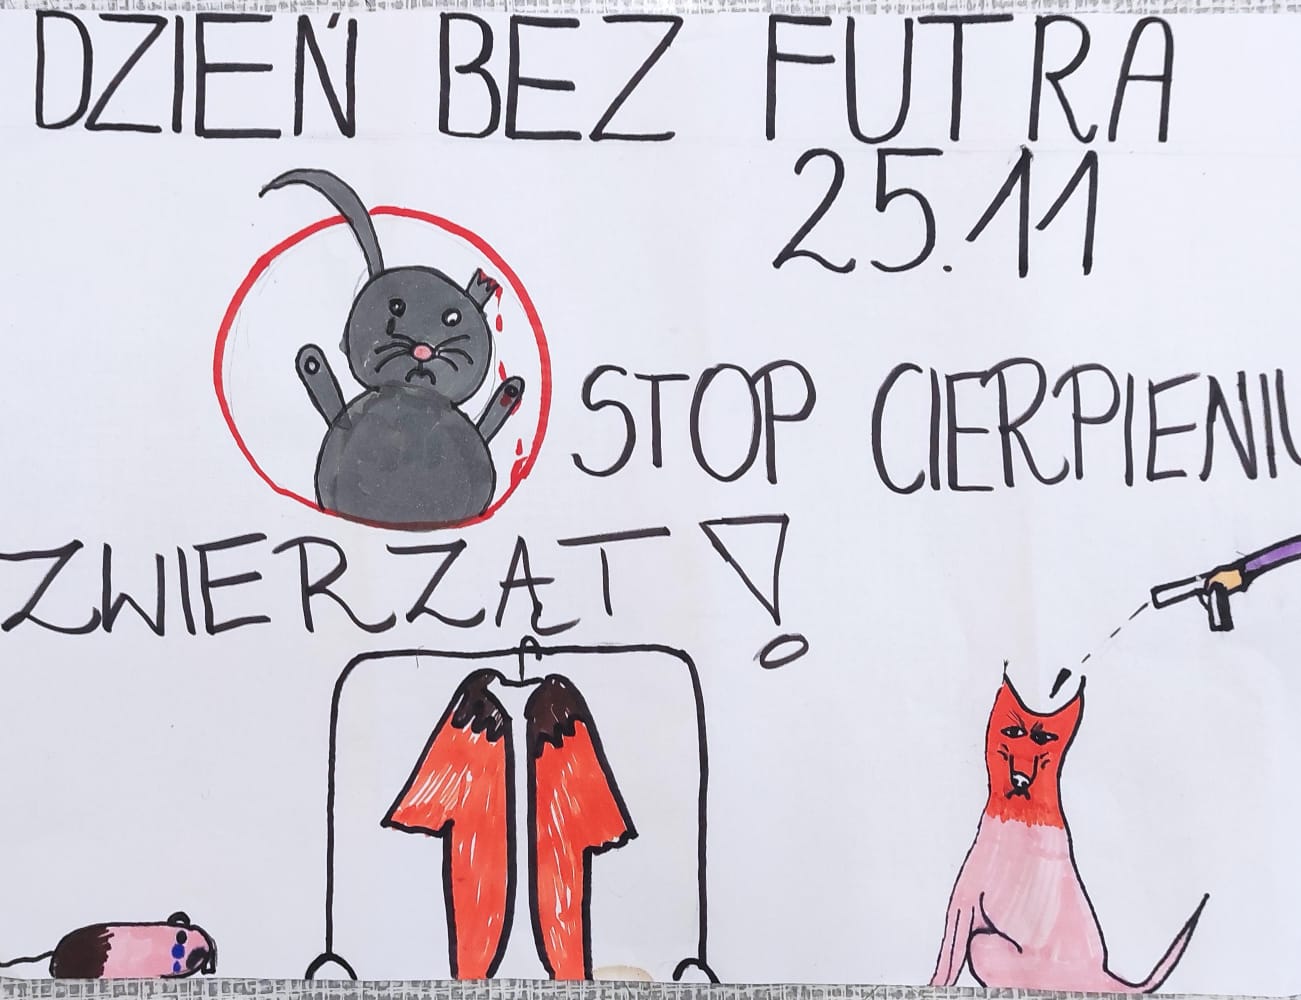 DZIEŃ BEZ FUTRA
25.11
STOP CIERPIENIU
ZWIERZĄT!